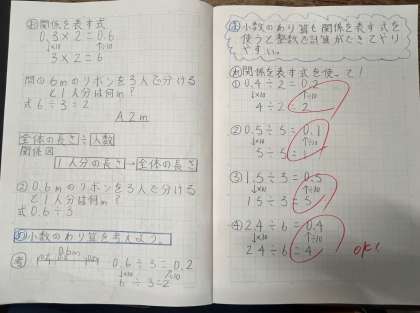 関係を表す式
0.3×2=0.6
↓×10 ↑÷10
3×2=6
問① 6mのリボンを3人で分ける
と1人分は何m?
式6÷3=2
A.2m
全体の長さ÷人数
関係図
1人分の長さ→全体の長さ
② 0.6mのリボンを3人で分ける
と1人分は何m?
式0.6÷3
小数のわり算を考えよう。
考 0.6m 0.6÷3=0.2
↓×10 ↑÷10
6÷3=2
小数のわり算も関係を表す式を
使うと整数で計算ができてやり
やすい。
関係を表す式を使って!
① 0.4÷2=0.2
↓×10 ↑÷10
4÷2=2
② 0.5÷5=0.1
↓×10 ↑÷10
5÷5=1
③ 1.5÷3=0.5
↓×10 ↑÷10
15÷3=5
④ 2.4÷6=0.4
↓×10 ↑÷10
24÷6=4
OK!